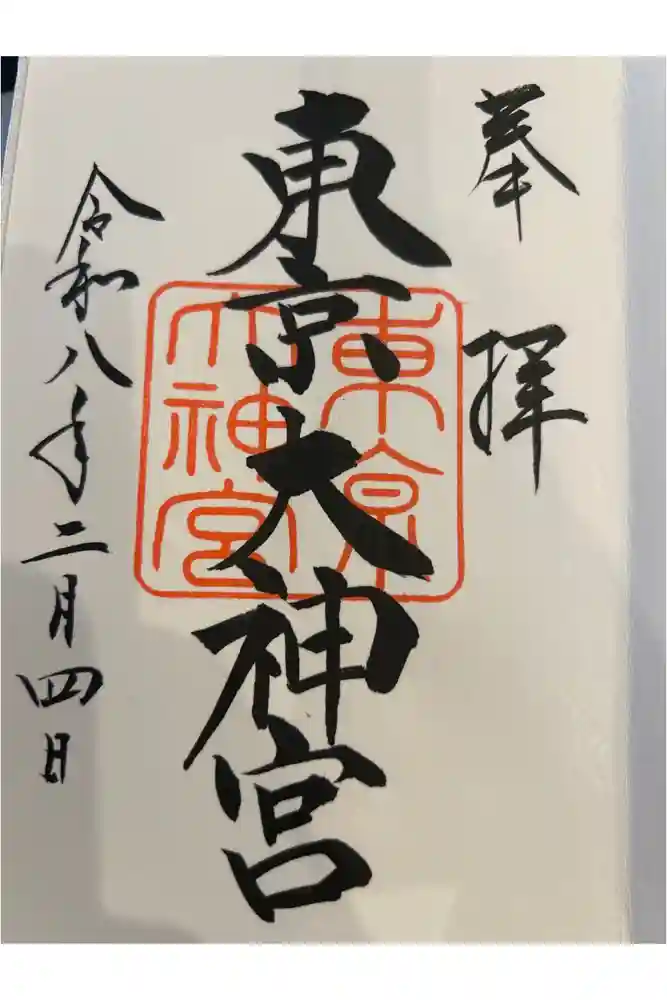 奉拝
東京大神宮
東京
大神宮
令和八年二月四日